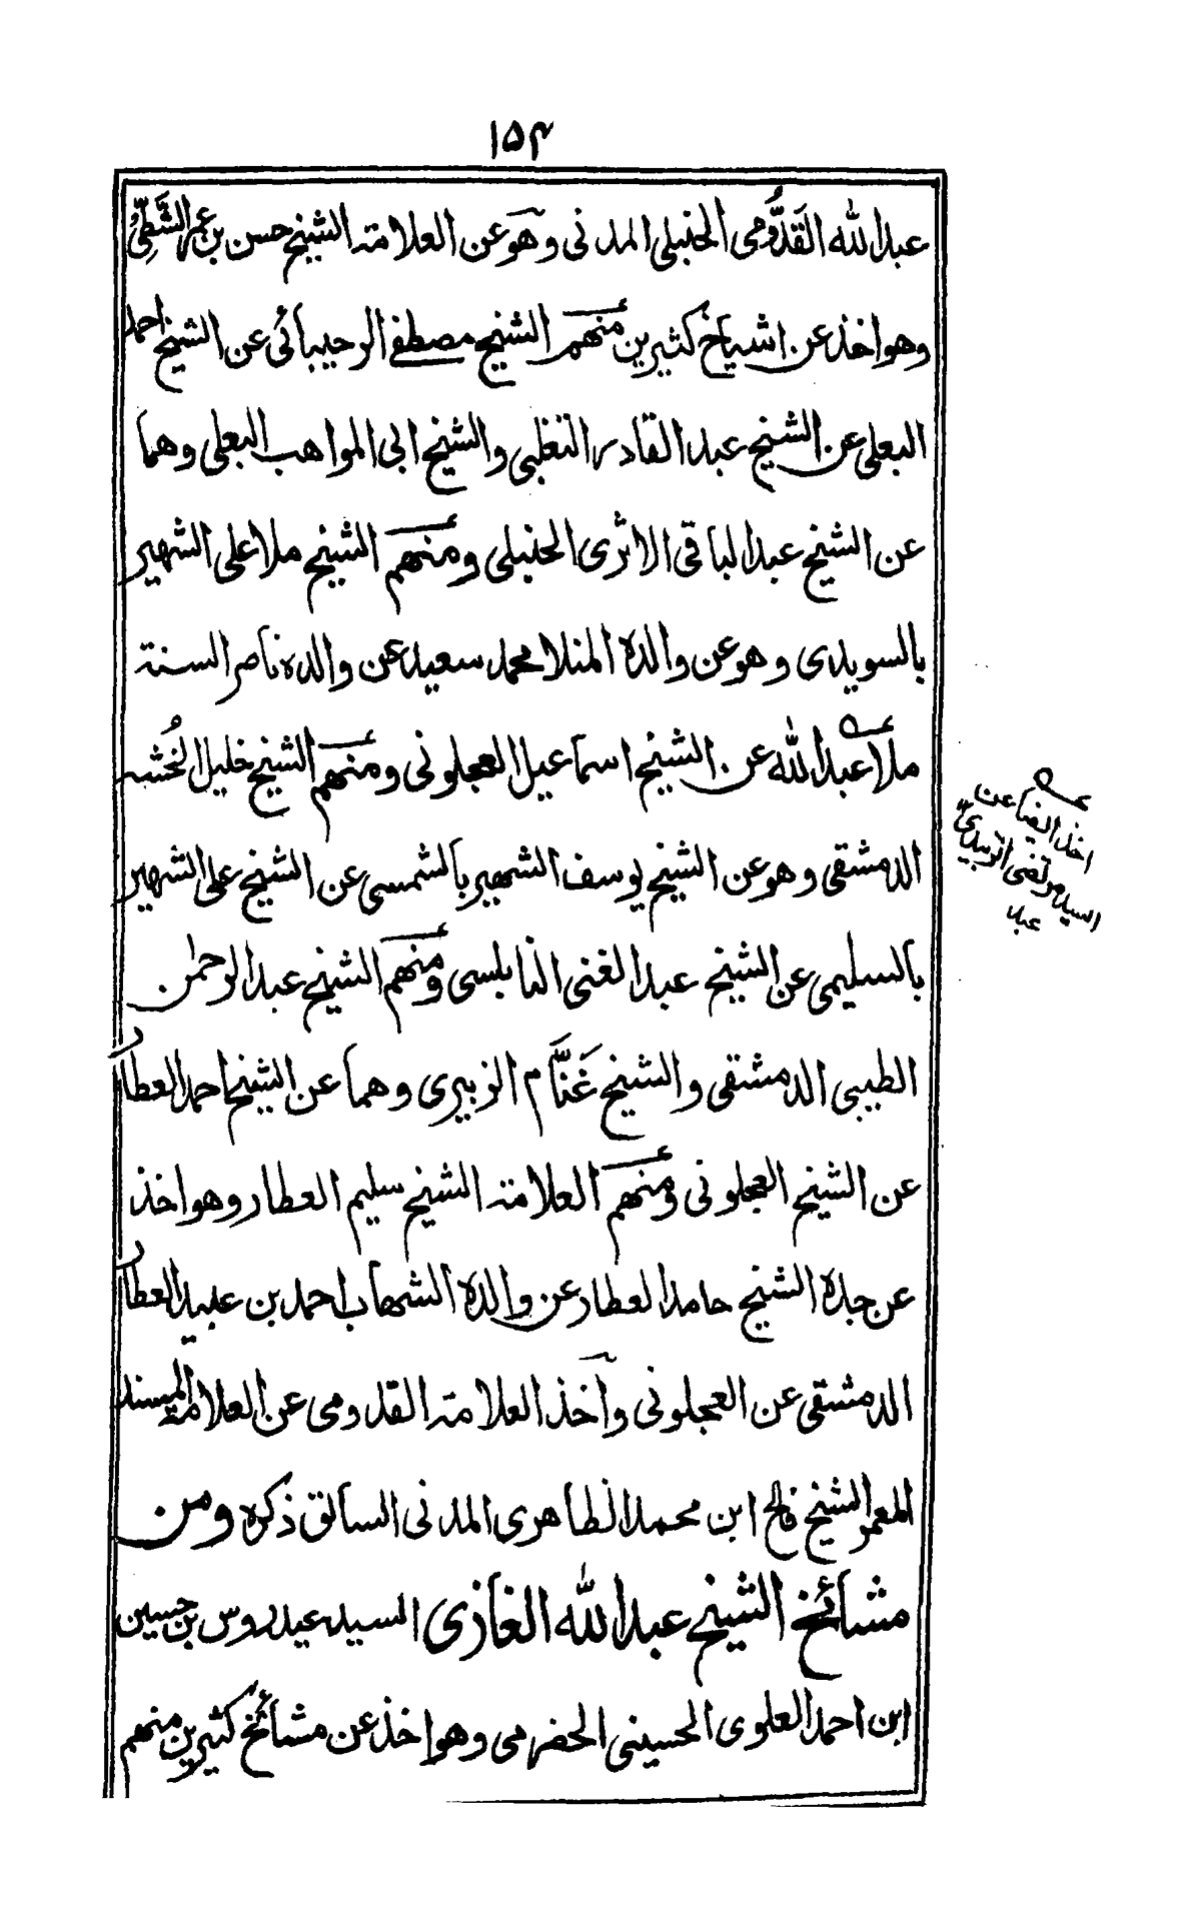 ١٥٤
عبدالله القَدُّومى الحنبلى المدنى وهو عن العلامة الشيخ حسن بن عمر الشَّطِّىّ
وهو اخذ عن اشياخ كثيرين منهم الشيخ مصطفى الرحيبائى عن الشيخ احمد
البعلى عن الشيخ عبد القادر التغلبى والشيخ ابى المواهب البعلى وهما
عن الشيخ عبد الباقى الاثرى الحنبلى ومنهم الشيخ ملا على الشهير
بالسويدى وهو عن والده المنلا محمد سعيد عن والده ناصر السنة
ملا عبد الله عن الشيخ اسماعيل العجلونى ومنهم الشيخ خليل الخُشه
الدمشقى وهو عن الشيخ يوسف الشهير بالشمسى عن الشيخ على الشهير
بالسليمى عن الشيخ عبد الغنى النابلسى ومنهم الشيخ عبد الرحمٰن
الطيبى الدمشقى والشيخ غَنَّام الزبيرى وهما عن الشيخ احمد العطار
عن الشيخ العجلونى ومنهم العلامة الشيخ سليم العطار وهو اخذ
عن جده الشيخ حامد العطار عن والده الشهاب احمد بن عبيد العطار
الدمشقى عن العجلونى وآخذ العلامة القدومى عن العلامة المسند
المعمر الشيخ فالح ابن محمد الظاهرى المدنى السابق ذكره ومن
مشائخ الشيخ عبد الله الغازى السيد عيدروس بن حسين
ابن احمد العلوى الحسينى الحضرمى وهو اخذ عن مشائخ كثيرين منهم
اخذ ايضا عن
السيد مرتضى الزبيدىّ
عبد